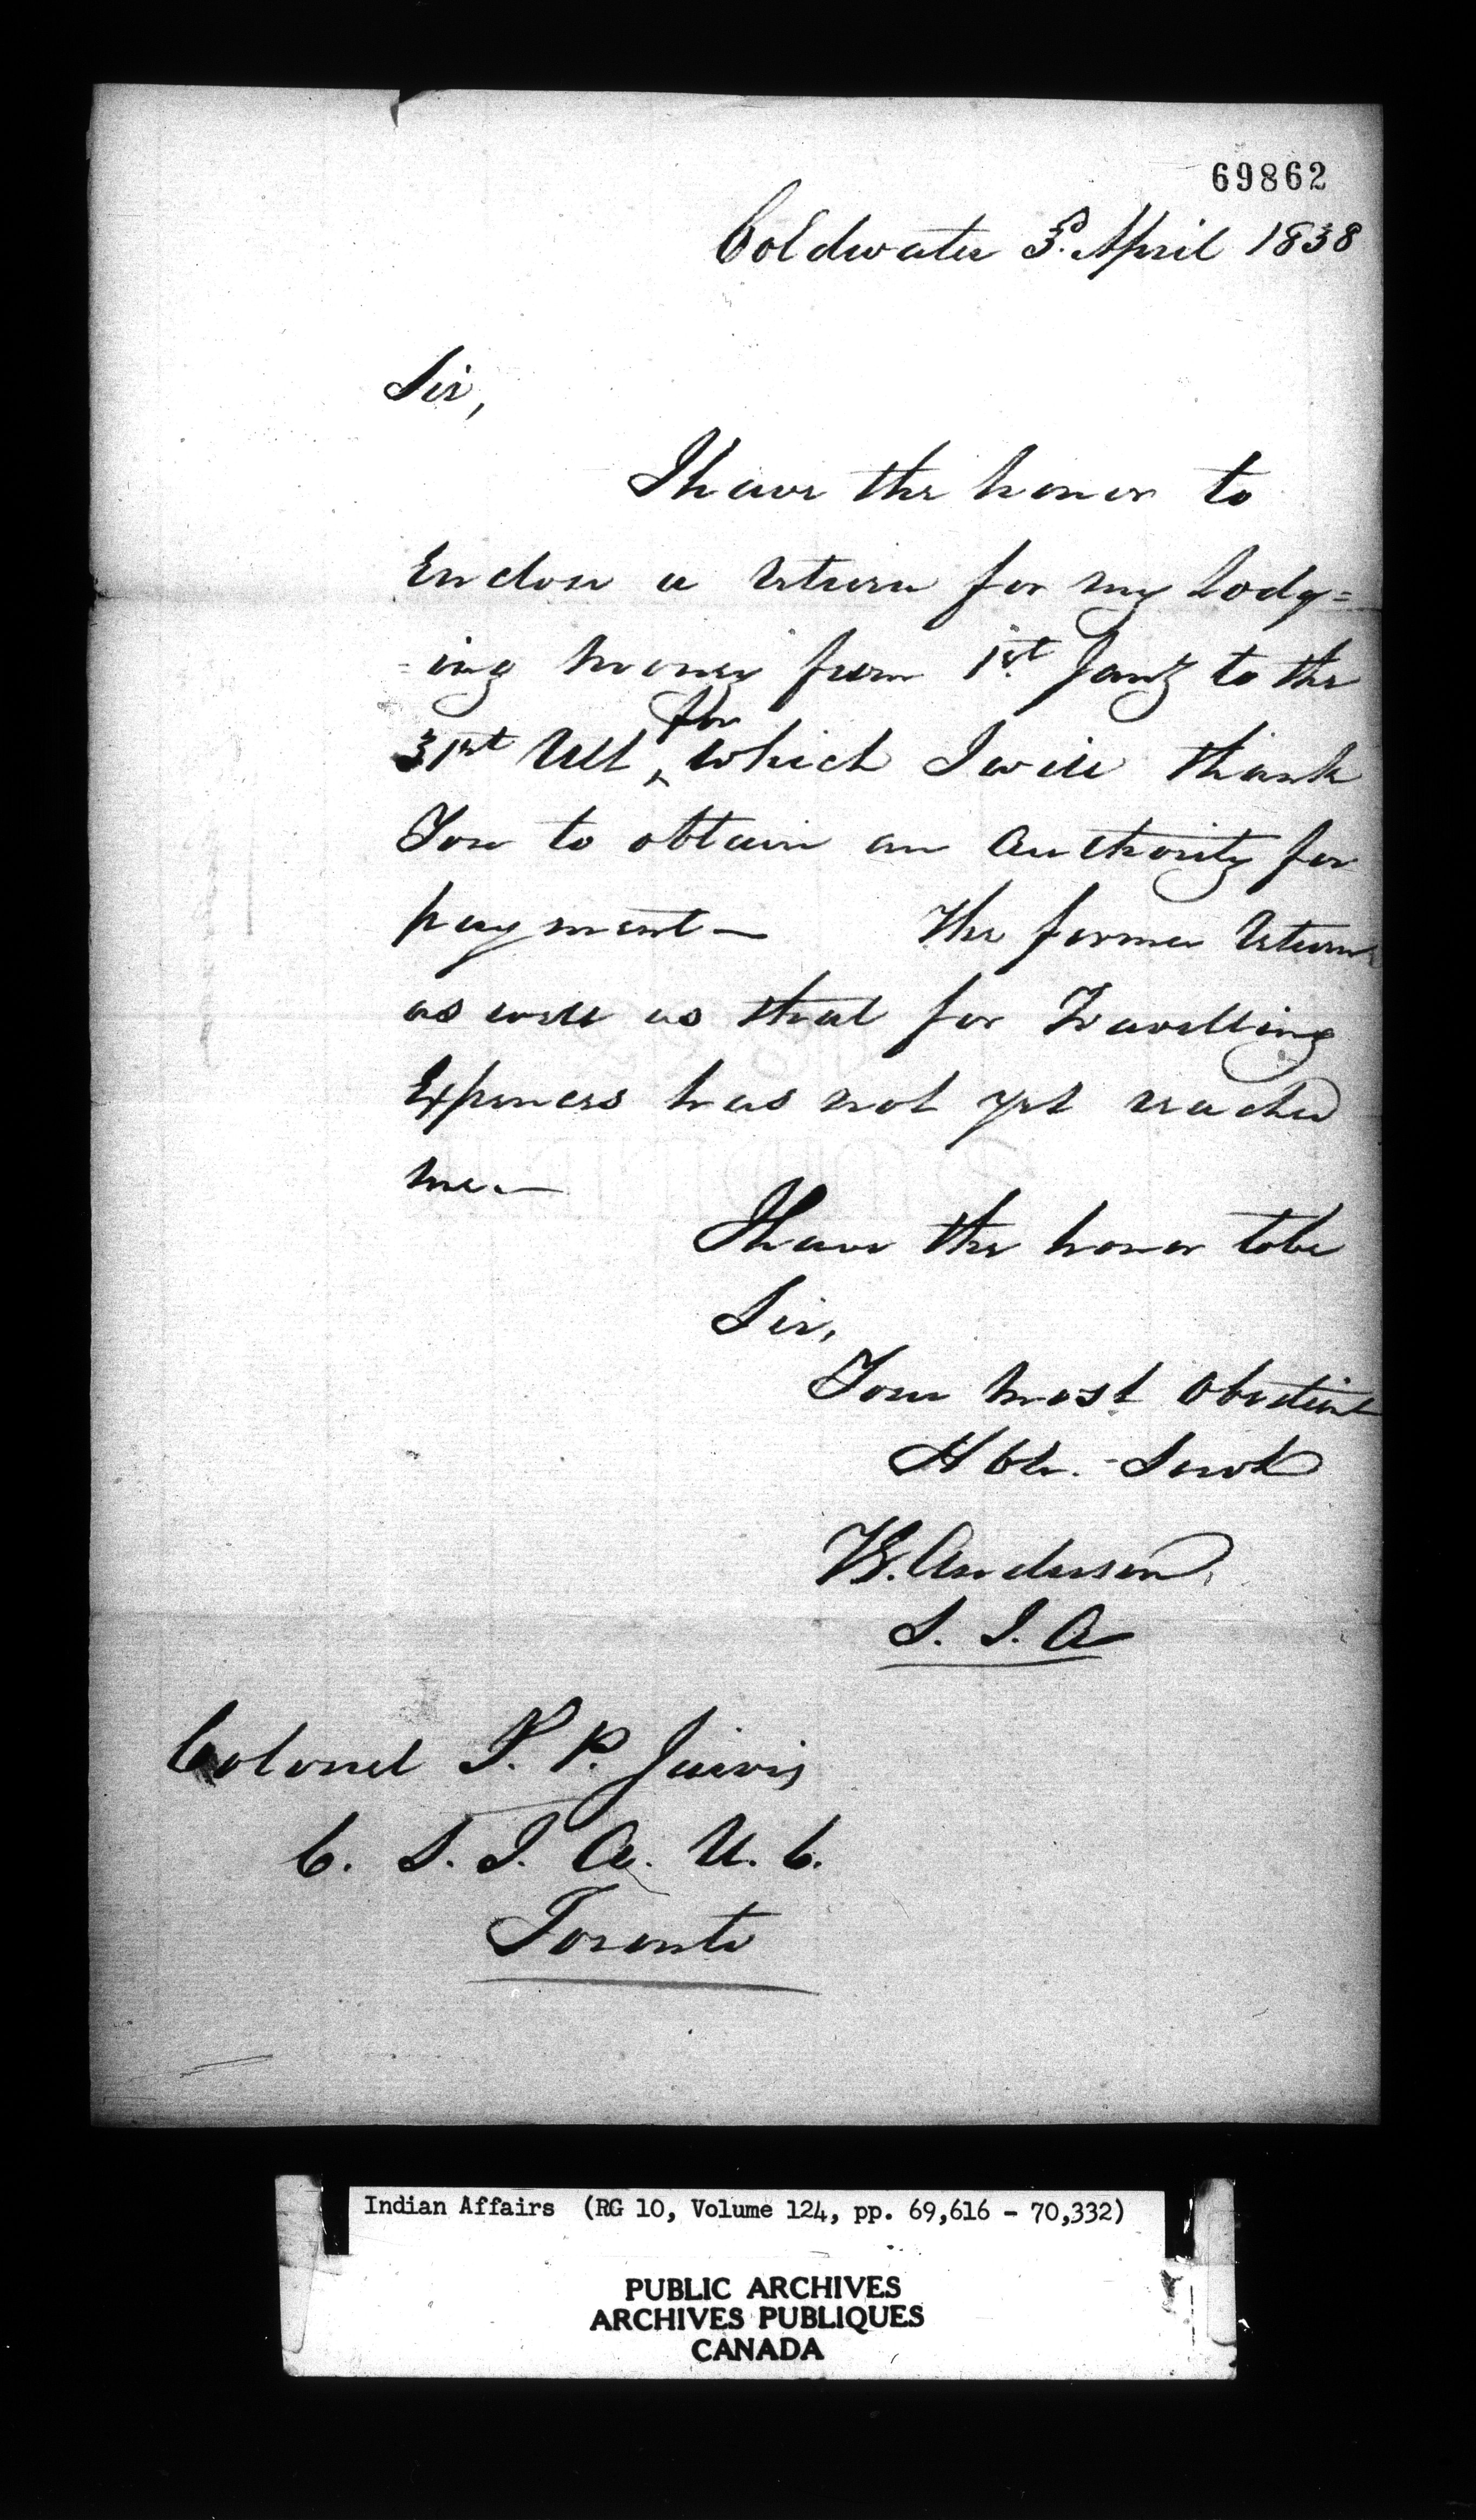 69862
Coldwater 3d. April 1838
Sir,
I have the honor to
Enclose a return for my Lodg=
=ing money from 1st. Jany to the
31st Ult, for which I will thank
You to obtain an Authority for
payment — The former Return
as well as that for Travelling
Expences has not yet reached
me. —
I have the honor to be
Sir,
Your most Obedient
Hble. Servt
Anderson
S. I. A
Colonel S. P. Jarvis
C. S. I. A. U. C.
Toronto
Indian Affairs (RG 10, Volume 124, pp. 69,616 - 70,332)
PUBLIC ARCHIVES
ARCHIVES PUBLIQUES
CANADA